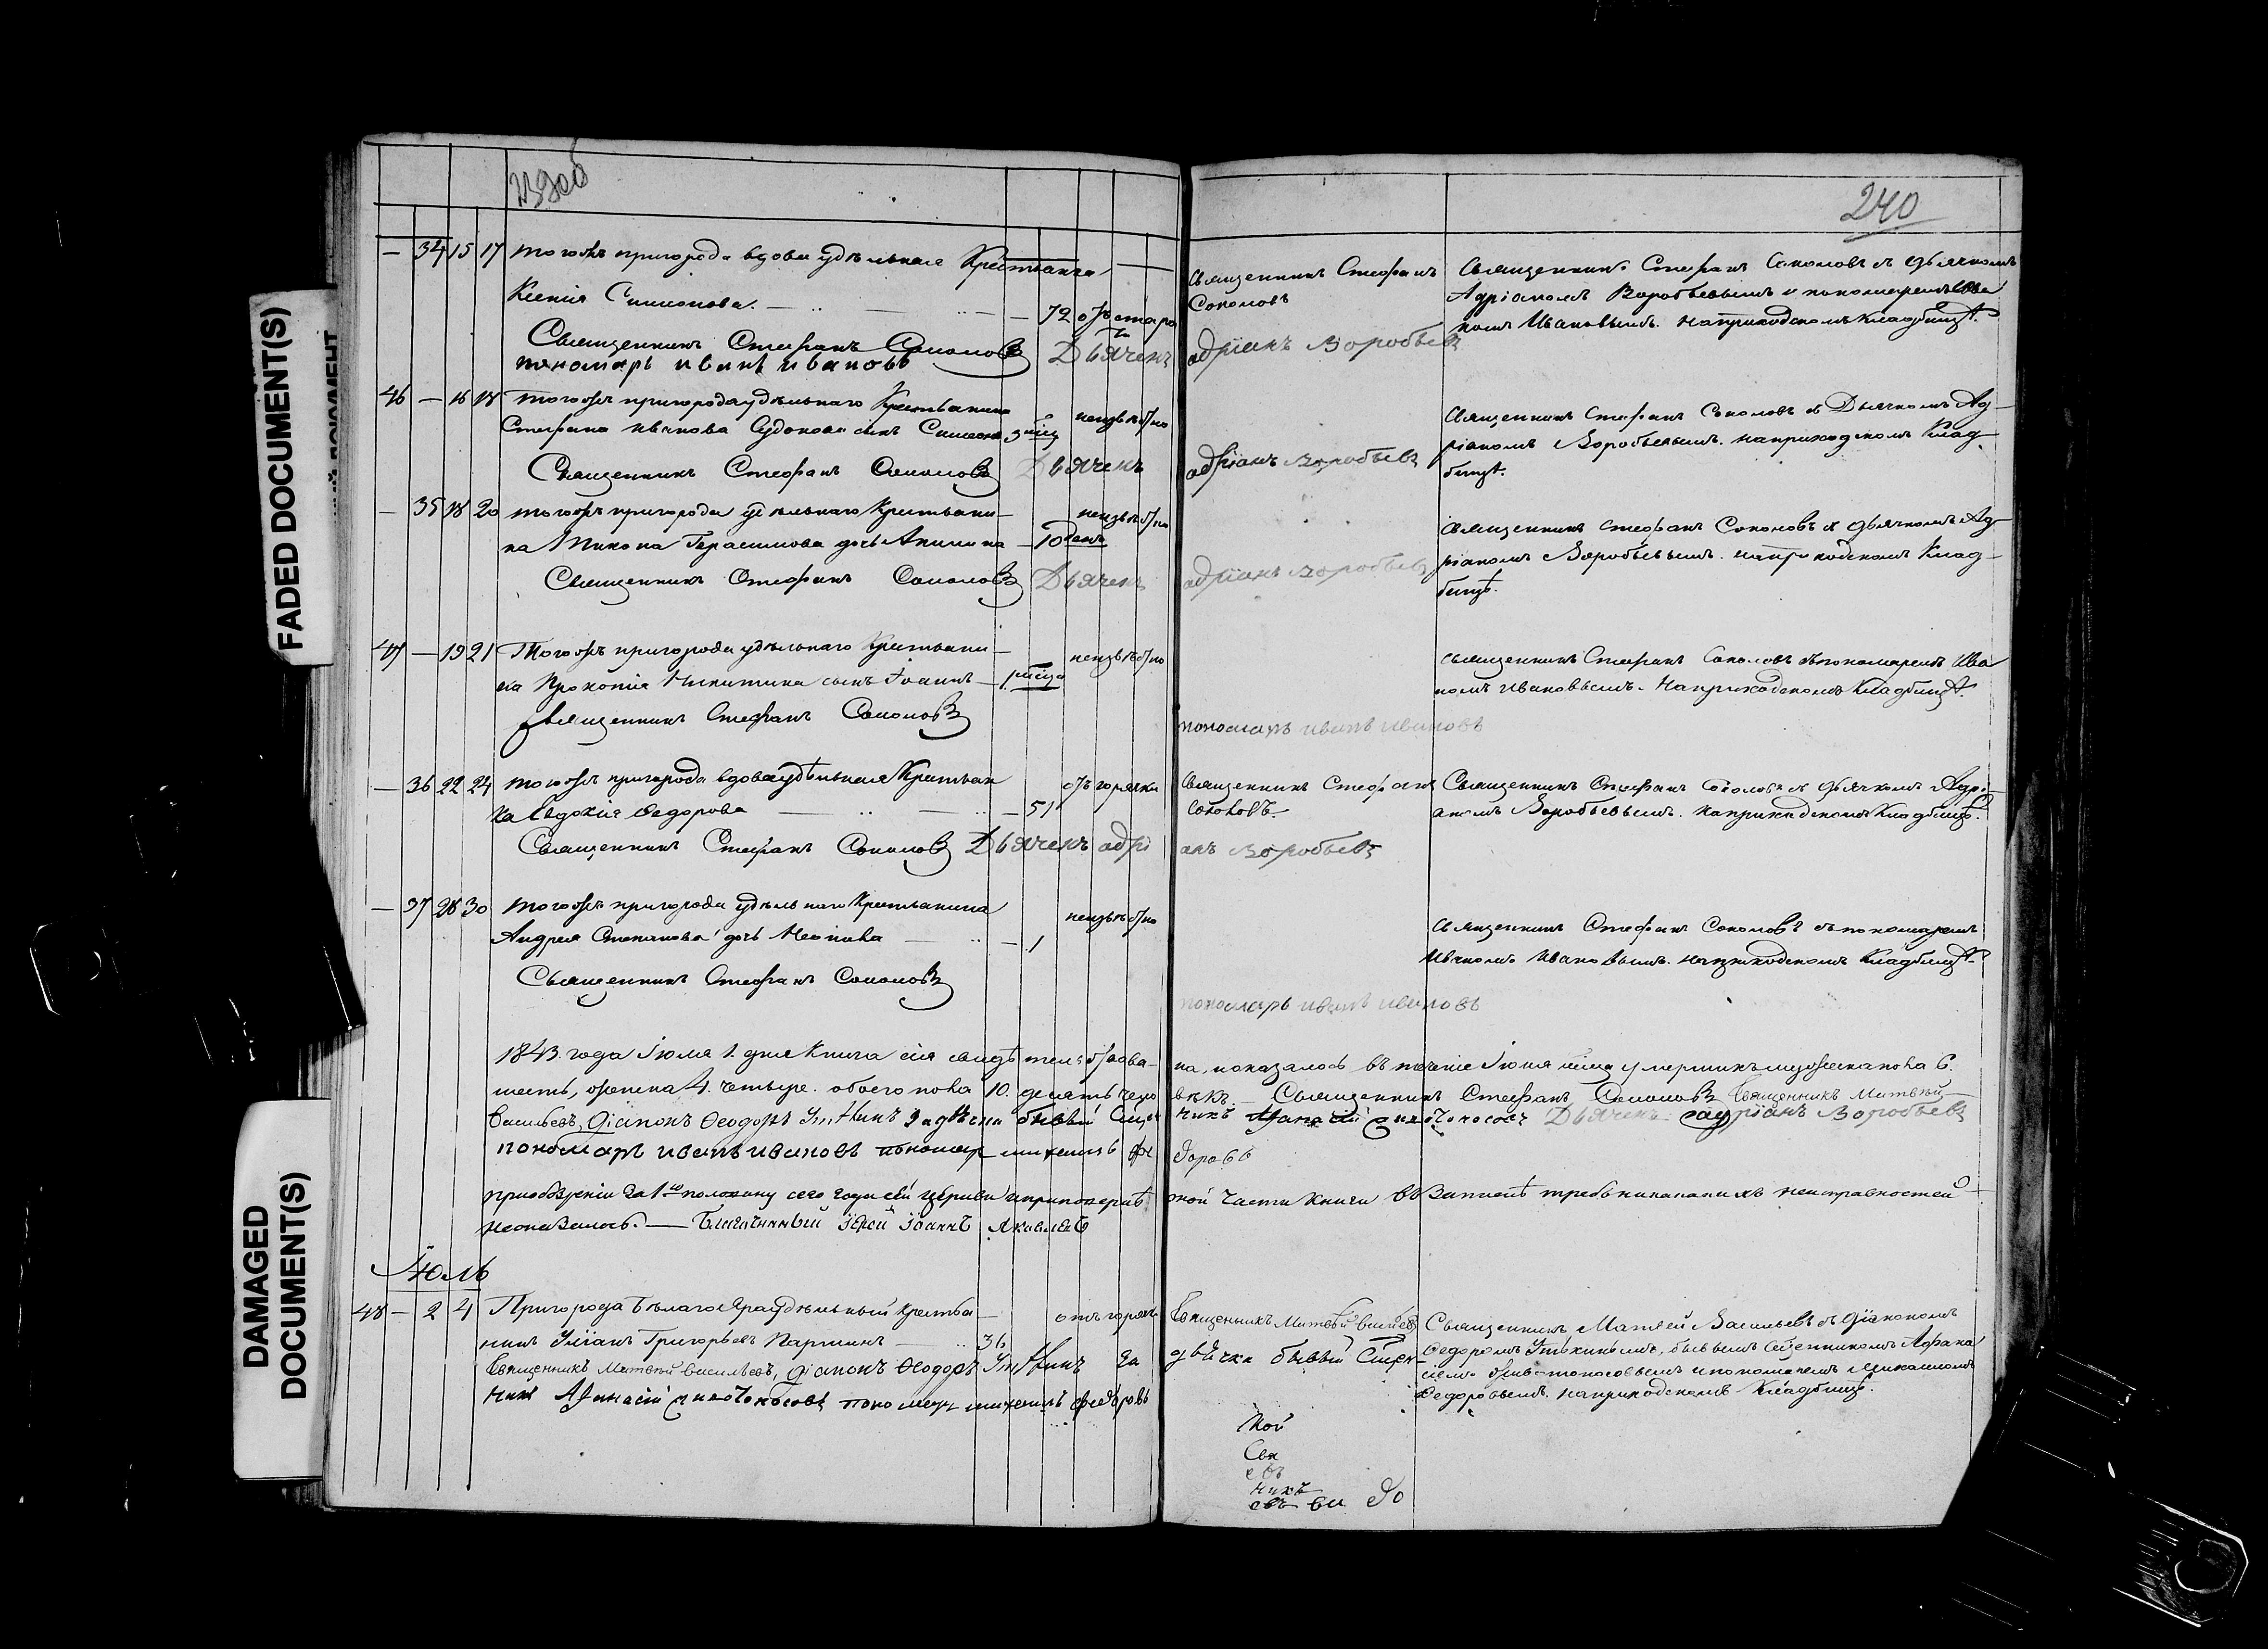 FADED DOCUMENT(S)
DAMAGED DOCUMENT(S)
239об
240
— 34 15 17 тогожъ пригорода вдова удѣльная Крестьянка
Ксенія Симионова. — 72 отъ старо
Священникъ Стефанъ Соколовъ
пономарь иванъ ивановъ
Дьячекъ адріанъ Воробьевъ
Священникъ Стефанъ
Соколовъ
Священникъ Стефанъ Соколовъ съ дьячкомъ
Адріаномъ Воробьевымъ и пономаремъ Ива
номъ Ивановымъ. На приходскомъ кладбищѣ.
46 — 16 18 тогожъ пригорода удѣльнаго Крестьянина
Стефана Иванова сынъ Симеонъ 3 мѣц неизвѣстно
Священникъ Стефанъ Соколовъ Дьячекъ адріанъ Воробьевъ
Священникъ Стефанъ Соколовъ съ Дьячкомъ Ад-
ріаномъ Воробьевымъ. на приходскомъ Клад
бищѣ.
— 35 18 20 тогожъ пригорода удѣльнаго Крестьяни-
на Тихона Герасимова дочь Акилина — 10 денъ неизвѣстно
Священникъ Стефанъ Соколовъ Дьячекъ адріанъ Воробьевъ
Священникъ Стефанъ Соколовъ съ дьячкомъ Ад-
ріаномъ Воробьевымъ. на приходскомъ Клад-
бищѣ.
47 — 19 21 Тогожъ пригорода удѣльнаго Крестьяни-
на Прокопія Никитина сынъ Іоаннъ — 1 мѣца неизвѣстно
Священникъ Стефанъ Соколовъ
пономарь иванъ ивановъ
Священникъ Стефанъ Соколовъ съ пономаремъ Ива
номъ Ивановымъ. На приходскомъ Кладбищѣ.
— 36 22 24 тогожъ пригорода вдова удѣльная Крестьян
ка Евдокія Федорова — 51 отъ горячки
Священникъ Стефанъ Соколовъ Дьячекъ адрі анъ Воробьевъ
Священникъ Стефанъ
Соколовъ
Священникъ Стефанъ Соколовъ съ дьячкомъ Адрі-
аномъ Воробьевымъ. на приходскомъ Кладбищѣ.
— 37 28 30 тогожъ пригорода удѣльнаго Крестьянина
Андрея Степанова дочь — 1 неизвѣстно
Священникъ Стефанъ Соколовъ
пономарь иванъ ивановъ
Священникъ Стефанъ Соколовъ съ пономаремъ
Иваномъ Ивановымъ. на приходскомъ Кладбищѣ.
1843. года Іюля 1. дня Книга сія свидѣтельствова- на, показалось въ теченіе Іюня мѣца умершихъ мужеска пола 6.
шесть, женска 4. четыре. обоего пола 10. десять чело вѣкъ. — Священникъ Стефанъ Соколовъ Священникъ Матвѣй
Васильевъ, Діаконъ Ѳеодоръ Утѣхинъ За дьячка бывый Свящ нникъ Афанасій Дьячекъ адріанъ Воробьевъ
пономарь иванъ ивановъ пономарь михаилъ фе доровъ
при обозрѣніи за 1ю половину сего года сей церкви и при повѣркѣ сной части книги въ Запискѣ требъ никакихъ неисправностей
неоказалось. — Благочинный Іерей Іоаннъ Яковлевъ
Июль
48 — 2 4 Пригорода Бѣлаго Яра удѣльный крестья
нинъ Уліанъ Григорьевъ Паршинъ — 36 отъ горяч
Священникъ Матвѣй Васильевъ, Діаконъ Ѳеодоръ Утѣхинъ За дьячка бывый Свящ
нникъ Афанасій пономарь михаилъ федоровъ
Священникъ Матвѣй Васильевъ
Священникъ Матвей Васильевъ съ діакономъ
Федоромъ Утѣхинымъ, бывымъ Священникомъ Афана
сіемъ и пономаремъ Михаиломъ
Федоровымъ. на приходскомъ Кладбищѣ.